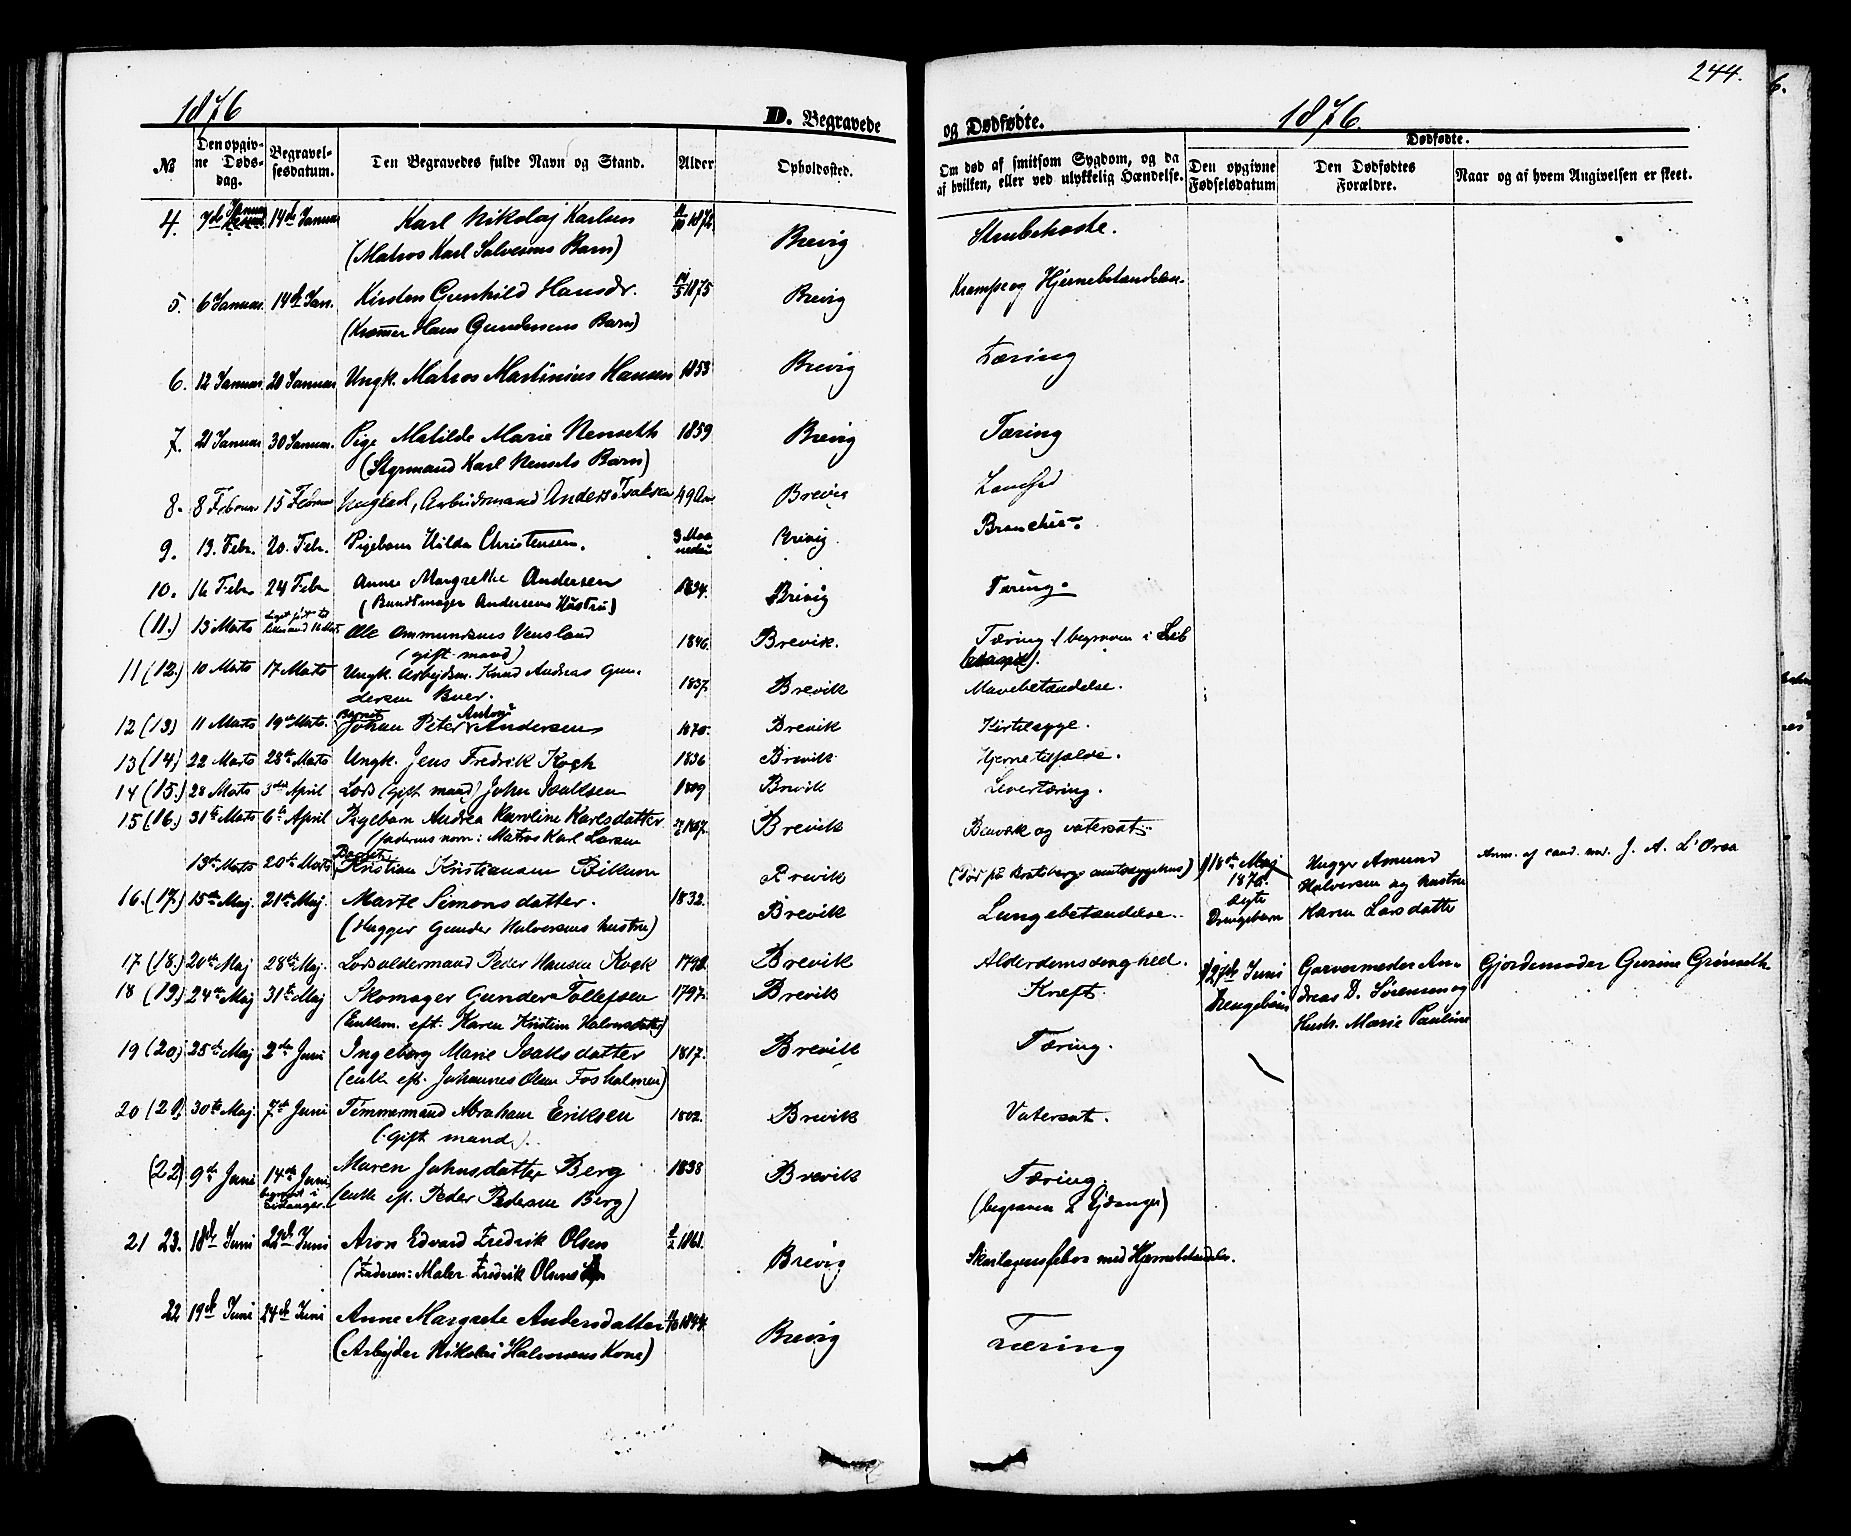 244.
1876
D. Begravede
og Dødfødte.
1876.
№
Den opgivne Døds-dag.
Begravel-sesdatum.
Den Begravedes fulde Navn og Stand.
Alder
Opholdssted.
Om død af smitsom Sygdom, og da af hvilken, eller ved ulykkelig Hændelse.
Dødfødte.
Den opgivne Fødselsdatum
Den Dødfødtes Forældre.
Naar og af hvem Angivelsen er skeet.
4. 7de 14de Januar Karl Nikolaj Karlsen Brevig Strubehoste.
(Matros Karl Salvesens Barn)
5. 6 Januar 14de Jan. Kirsten Gunhild Hansdr. 14/5 1875 Brevig Krampe og Hjernebetændelse.
(Kræmmer Hans Gundersens Barn)
6. 12 Januar 20 Januar Ungk. Matros Martinius Hansen 1853 Brevig Tæring
7. 21 Januar 30 Januar. Pige Matilde Marie Nenseth 1859 Brevig Tæring
(Styrmand Karl Nensets Barn)
8. 8 Februar 15 Februar Arbeidsmand Anders Isaksen 49 Aar Brevig
9. 13. Febr. 20. Febr. Pigebarn Hilda Christensen. 3 Maaneder Brevig. Bronchie.
10. 16 Febr 24 Febr Anne Margrethe Andersen 1834. Brevig Tæring.
(Bundtmager Andersens Hustru)
(11.) 13 Marts Ole Ommundsens Vensland 1846. Brevik. Tæring (begraven i
(gift mand)
11 (12.) 10 Marts 17 Marts Ungk. Arbejdsm. Knud Andreas Gun- 1837. Brevik Mavebetændelse.
dersen Buer.
12 (13) 11 Marts 19de Marts. Barnet Johan Peter Antoni Andersen 1870. Brevik Kirtelsyge.
13 (14) 22 Marts 28de Marts Ungk. Jens Fredrik Koch 1836 Brevik Hjernetilfælde.
14 (15.) 28 Marts 3die April Lods (gift mand) John Isaksen 1809 Brevik Levertæring.
15 (16.) 31te Marts 6te April Pigebarn Andrea Karoline Karlsdatter 1867. Brevik Benværk og vatersot.
(faderens navn: Matros Karl Larsen
13de Marts 20de Marts Barnet Kristian Kristiansen Brevik (Død på Bratsbergs amtssygehus)
18de Maj 1876. ægte Drengebarn Hugger Amund Halvorsen og hustru Karen Larsdatter Anm. af cand. med. J. A. L'Orsa
16. (17.) 15de Maj. 21de Maj. Marte Simonsdatter. 1832. Brevik Lungebetændelse.
(Hugger Gunder Halvorsens hustru)
17 (18.) 20de Maj 28de Maj. Lodsoldermand Peder Hansen Kock 1798. Brevik Alderdomssvaghed.
27de Juni Drengebarn Garvermester Andreas D. Sørensen og Hustr. Marie Pauline Gjordemoder Gurine Grønseth
18 (19.) 24de Maj 31te Maj Skomager Gunder Tollefsen 1797. Brevik Kræft.
(Enkem. eft. Karen Kristine Halvorsdatter)
19 (20) 25de Maj 2den Juni Ingeborg Marie Isaksdatter 1817. Brevik Tæring.
(enke eft. Johannes Olsen Fosholmen)
20 (21) 30te Maj. 7de Juni Tømmermand Abraham Eriksen 1802. Brevik Vatersot.
(gift mand).
(22) 9de Juni 14de Juni begravet i Eidanger. Maren Johnsdatter Berg 1838 Brevik Tæring.
(enke eft. Peder Pedersen Berg) (begraven i Ejdanger)
21 23. 18de Juni 22de Juni Aron Edvard Fredrik Olsen Brevig Skarlagensfeber med Hjernebetændelse.
(Faderen: Maler Fredrik Olsens
22 19de Juni 24de Juni Anne Margrete Andersdatter 1844. Brevig Tæring
(Arbejder Nikolai Halvorsens Kone)